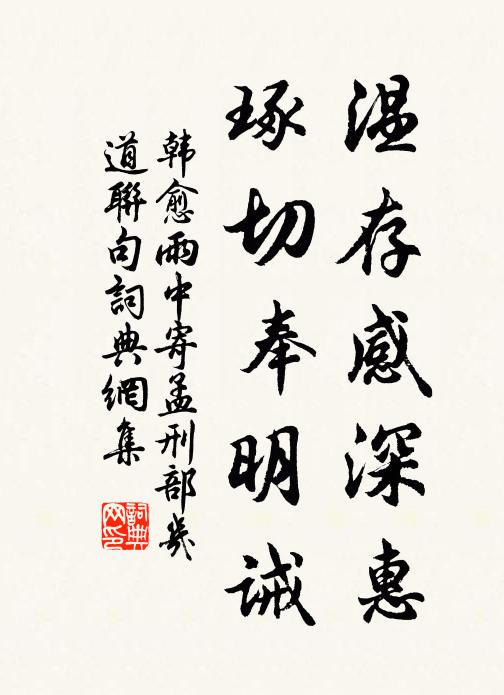 温存感深惠
琢切奉明诫
韩愈雨中寄孟刑部几
道联句詞典網集
詞典
网印